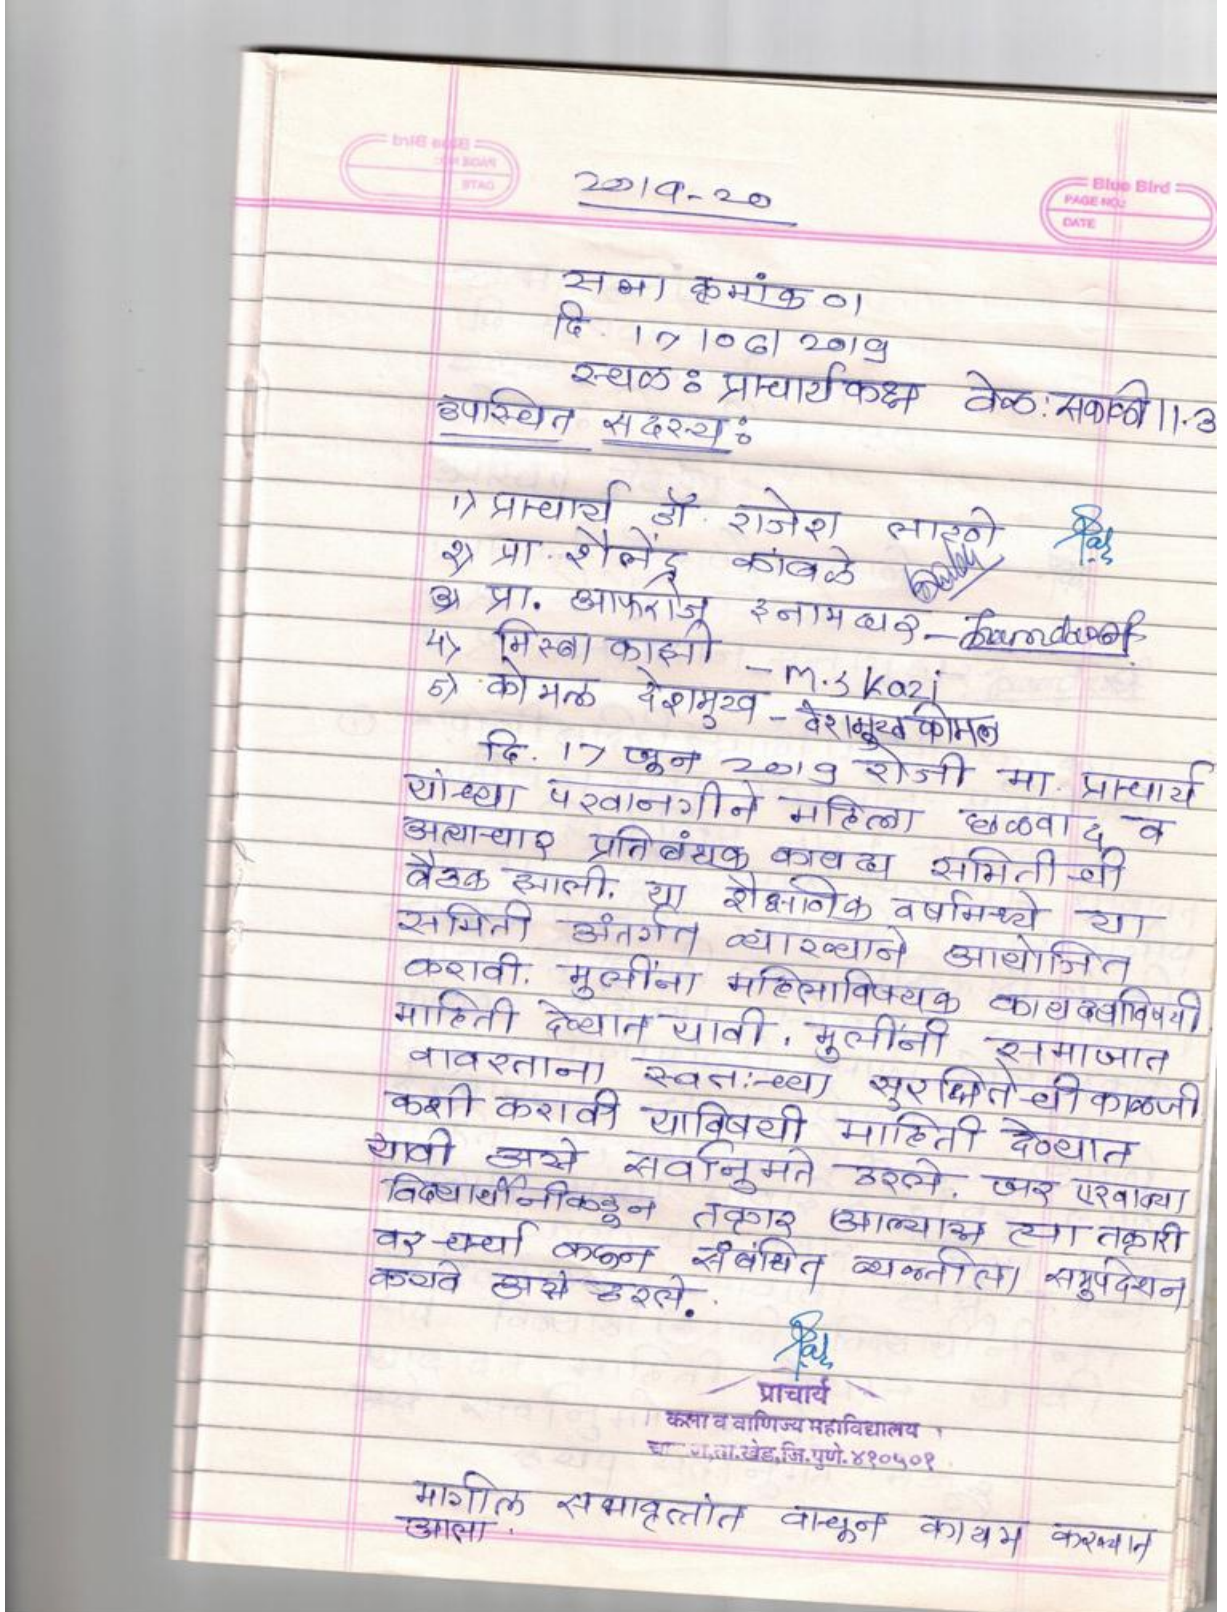 Blue Bird
PAGE NO.:
DATE
२०१९-२०
सभा क्रमांक ०१
दि. 17/06/2019
स्थळ : प्राचार्य कक्ष वेळ: सकाळी 11.3
उपस्थित सदस्य :
1) प्राचार्य डॉ. राजेश लाटणे
२) प्रा. शैलेंद्र कांबळे
3) प्रा. आफरोज इनामदार - Inamdar
4) मिस्बा काझी - M.S Kazi
5) कोमल देशमुख - देशमुख कोमल
दि. 17 जून 2019 रोजी मा. प्राचार्य
यांच्या परवानगीने महिला छळवाद व
अत्याचार प्रतिबंधक कायदा समितीची
बैठक झाली. या शैक्षणिक वर्षामध्ये या
समिती अंतर्गत व्याख्याने आयोजित
करावी. मुलींना महिलाविषयक कायद्याविषयी
माहिती देण्यात यावी. मुलींनी समाजात
वावरताना स्वतःच्या सुरक्षितेची काळजी
कशी करावी याविषयी माहिती देण्यात
यावी असे सर्वानुमते ठरले. जर एखाद्या
विद्यार्थीनीकडून तक्रार आल्यास त्या तक्रारी
वर चर्चा करून संबंधित व्यक्तीला समुपदेशन
करावे असे ठरले.
प्राचार्य
कला व वाणिज्य महाविद्यालय
ता.खेड,जि.पुणे.४१०५०१
मागील सभावृत्तांत वाचून कायम करण्यात
आला.